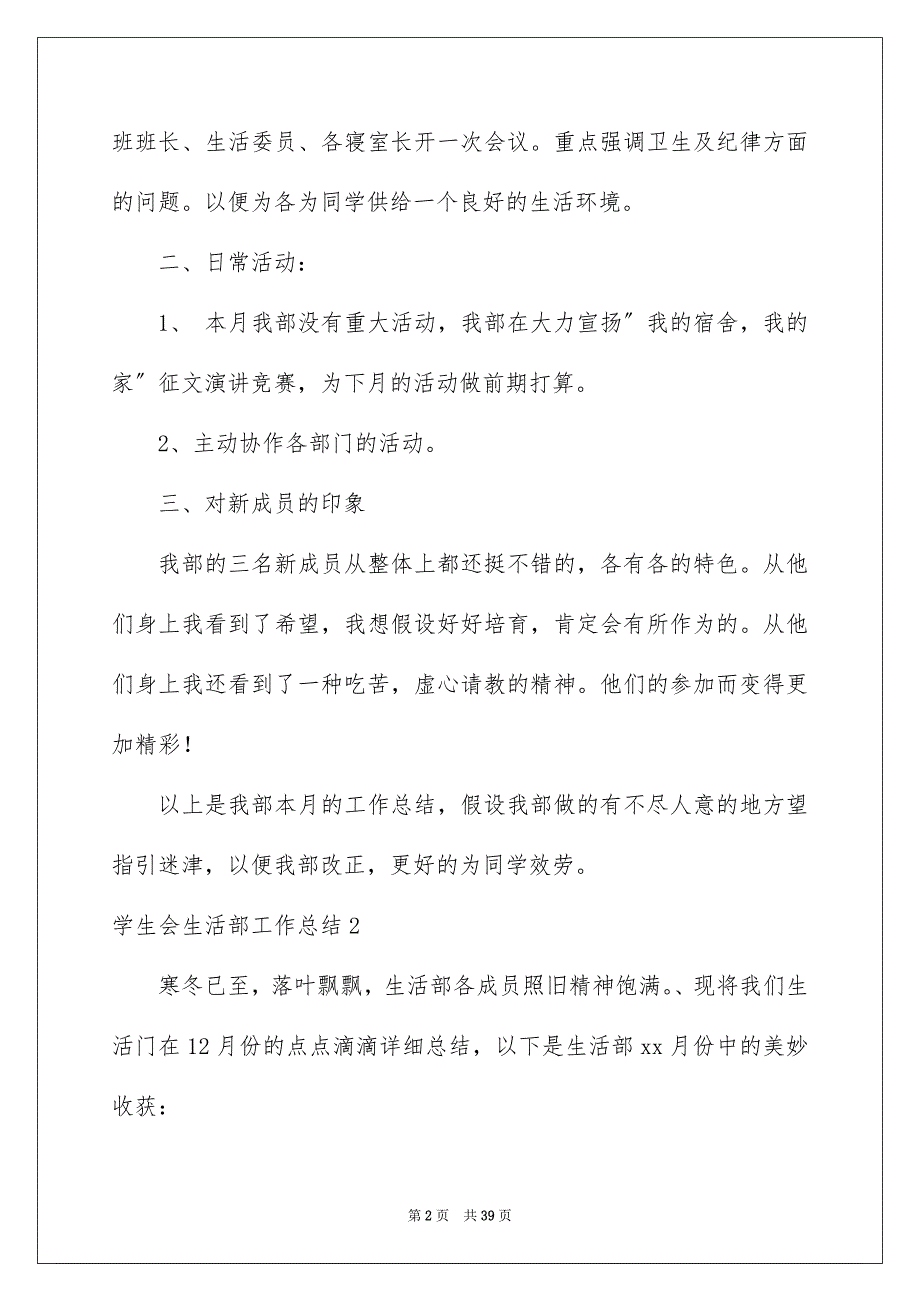 班班长、生活委员、各寝室长开一次会议。重点强调卫生及纪律方面
的问题。以便为各为同学供给一个良好的生活环境。
二、日常活动：
1、 本月我部没有重大活动，我部在大力宣扬〞我的宿舍，我的
家〞征文演讲竞赛，为下月的活动做前期打算。
2、主动协作各部门的活动。
三、对新成员的印象
我部的三名新成员从整体上都还挺不错的，各有各的特色。从他
们身上我看到了希望，我想假设好好培育，肯定会有所作为的。从他
们身上我还看到了一种吃苦，虚心请教的精神。他们的参加而变得更
加精彩！
以上是我部本月的工作总结，假设我部做的有不尽人意的地方望
指引迷津，以便我部改正，更好的为同学效劳。
学生会生活部工作总结 2
寒冬已至，落叶飘飘，生活部各成员照旧精神饱满。、现将我们生
活门在 12 月份的点点滴滴详细总结，以下是生活部 xx 月份中的美妙
收获：
第 2 页 共 39 页